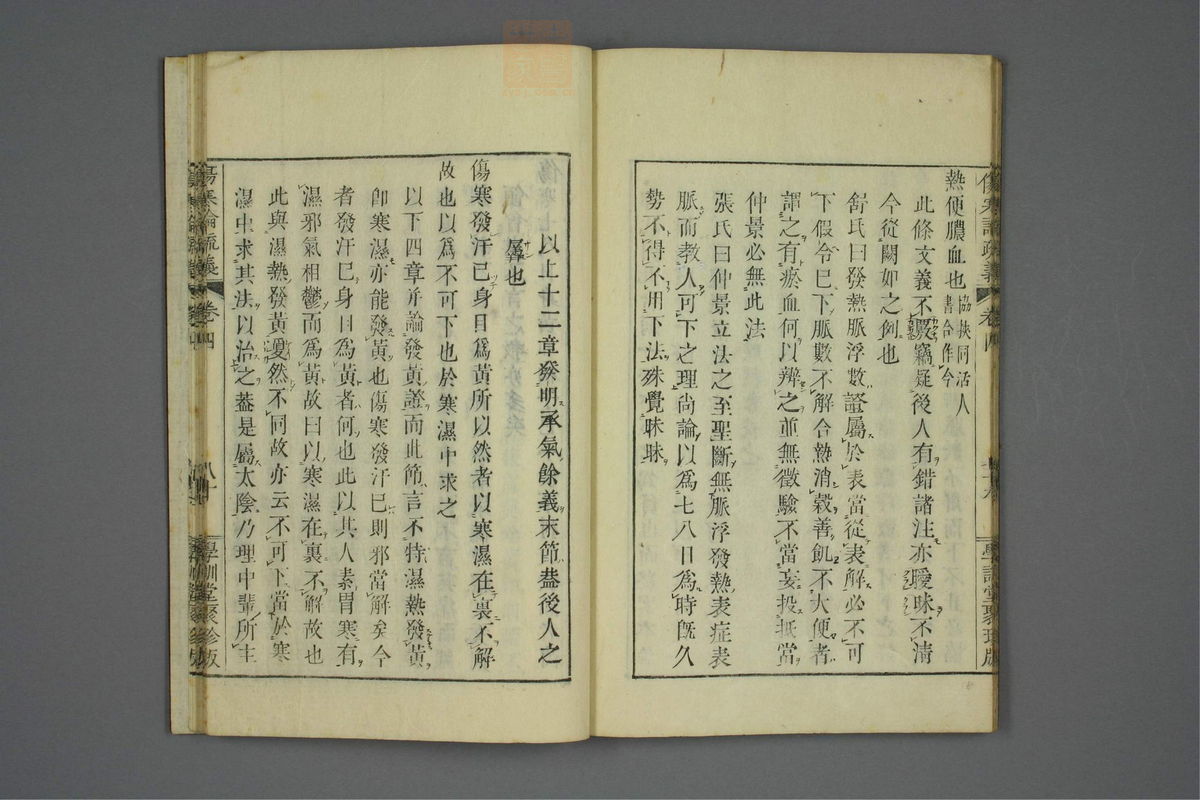 熱便膿血也 協挾同活人
書合作令
此條文義不覈竊疑後人有錯諸注亦曖昧不清
今從闕如之例也
舒氏曰發熱脈浮數證屬於表當從表解必不可
下假令已下脈數不解合熱消穀善飢不大便者
謂之有瘀血何以辨之並無徵驗不當妄投抵當
仲景必無此法
張氏曰仲景立法之至聖斷無脈浮發熱表症表
脈而教人可下之理尚論以為七八日為時既久
勢不得不用下法殊覺昧昧
以上十二章發明承氣餘義末節蓋後人之
羼也
傷寒發汗已身目為黃所以然者以寒濕在裏不解
故也以為不可下也於寒濕中求之
以下四章并論發黃證而此節言不特濕熱發黃
卽寒濕亦能發黃也傷寒發汗已則邪當解矣今
者發汗已身目為黃者何也此以其人素胃寒有
濕邪氣相鬱而為黃故曰以寒濕在裏不解故也
此與濕熱發黃敻然不同故亦云不可下當於寒
濕中求其法以治之蓋是屬太陰乃理中輩所主
傷寒論疏義 卷四 八十 學訓堂聚珍版